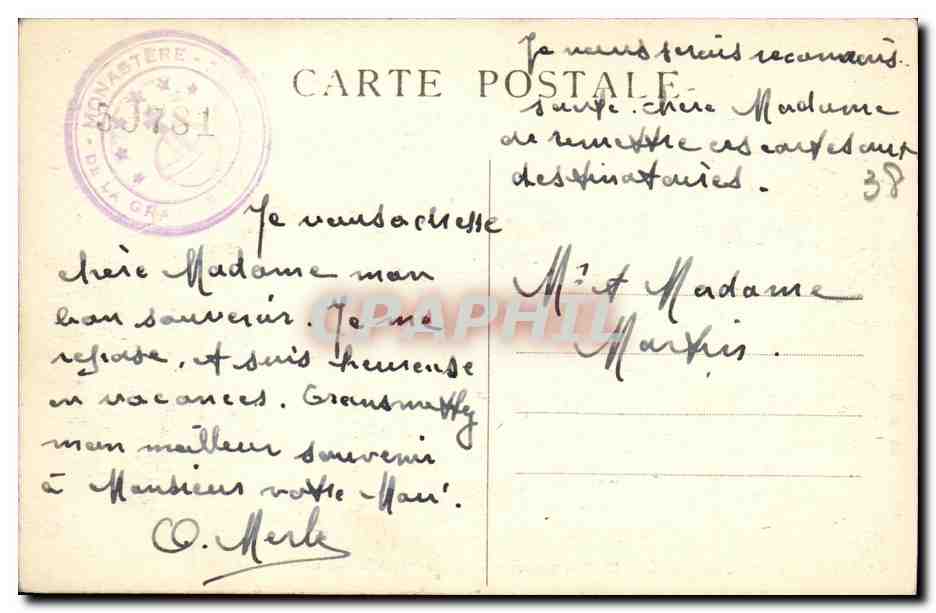 MONASTÈRE
DE LA GRA
CARTE POSTALE
Je vous serais reconnais-
sante. chère Madame
de remettre ces cartes aux
destinataires.
38
Je vous adresse
chère Madame mon
bon souvenir. Je me
repose, et suis heureuse
en vacances. Transmettez
mon meilleur souvenir
à Monsieur votre Mari.
O. Merle
Mr et Madame
Martin.
CPAPHIL